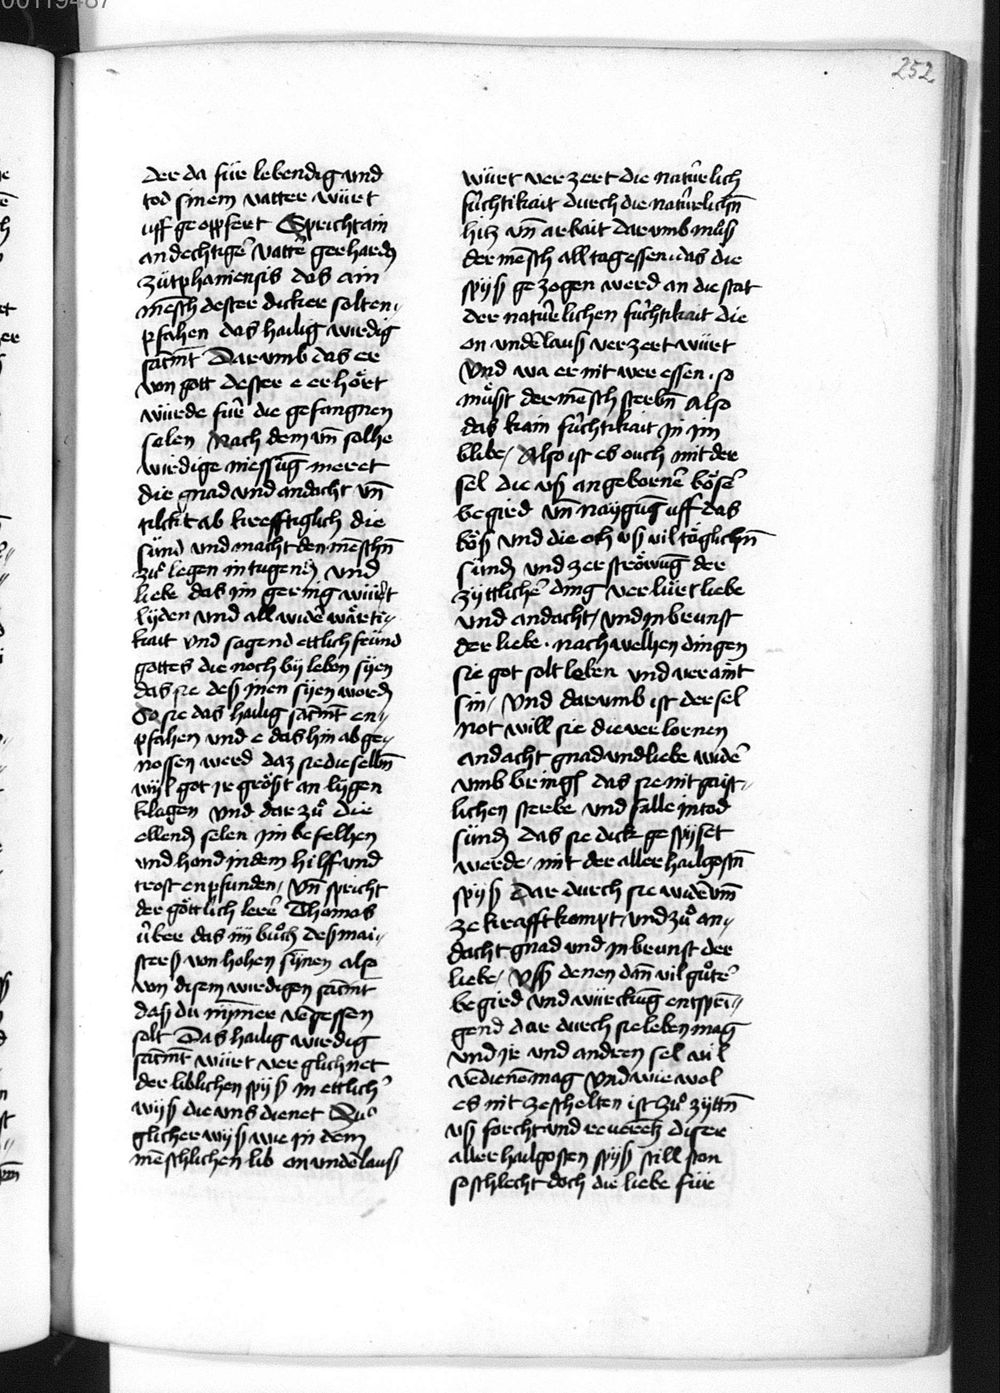 00119487
252
der da für lebendig und
tod sinem vatter würt
uff geopfert Spricht ain
andechtigē vattē gerhardꝰ
zütphaniensis das ain
mēsch dester dicker solt en⸗
pfahen das hailig wirdig
sacmt̄ Darumb das er
von gott dester e erhört
würde für die gefangnen
selen Nach dem vn̄ solhe
wirdige niessūg meret
die gnad und andacht vn̄
tilckt ab krefftiglich die
sünd und macht den mēschn̄
zů legen in tugendꝫ und
liebe das im gering würt
lyden und all widē wärti⸗
kait Und sagend ettlich fründ
gottes die noch bÿ leben syen
das sie deß jnen syen wordꝫ
So sie das hailig sacmt̄ en⸗
pfahen und e das hin ab ge⸗
nossen werd daz sie die selbn̄
wyl got ir gröst an lygen
klagen Und dar zů die
ellendꝫ selen jm befelhen
und hond in dem hilff und
trost enpfunden / Vn̄ spricht
der göttlich lerē Thomas
über das iiij bůch deß mai⸗
sterß von hohen synen also
von disem wirdigen sacmt̄
daß du nymmer vēgessen
solt Das hailig wirdig
sacmt̄ würt verglichnet
der liblichen spyß in ettlichꝰ
wyß die uns dienet Zuͦ
glicher wyß wie jn dem
mēschlichen lib on undēlauß
würt verzert die natürlich
füchtikait durch die natürlichn̄
hitz vn̄ arbait darumb můß
der mēsch all tag essen das die
spyß gezogen werd an die stat
der natürlichen füchtikait die
on undēlauß verzert würt
Und wa er nit wer essen · so
můst der mēsch sterbn̄ Also
das kain füchtikait jn jm
blibe / Also ist es ouch mit der
sel die uß angebornē bösē
begird vn̄ naygūg uff das
böß und die och uß vil töglichn̄
sündꝫ und zerströwūg der
zyttlichē ding verlürt liebe
und andacht / und inbrunst
der liebe · nach welhen dingen
sie got solt leben und veraint
sin / Und darumb ist der sel
not will sie die verlornen
andacht gnad und liebe widē
umb bringē das sie nit gaist⸗
lichen sterbe und falle in tod
sündꝫ das sie dick gespyset
werde / mit der aller hailgostn̄
spyß Dar durch sie widē vm̄
ze krafft kompt / und zů an⸗
dacht gnad und inbrunst der
liebe / Uß denen dan̄ vil gůtē
begird und würckūg entspri⸗
gend dar durch sie leben mag
und ir und andren sel vil
vēdienē mag Und wie wol
es nit ze schelten ist zů zyttn̄
uß forcht und reverētz diser
aller hailgosten spyß still ston
so schlecht doch die liebe für